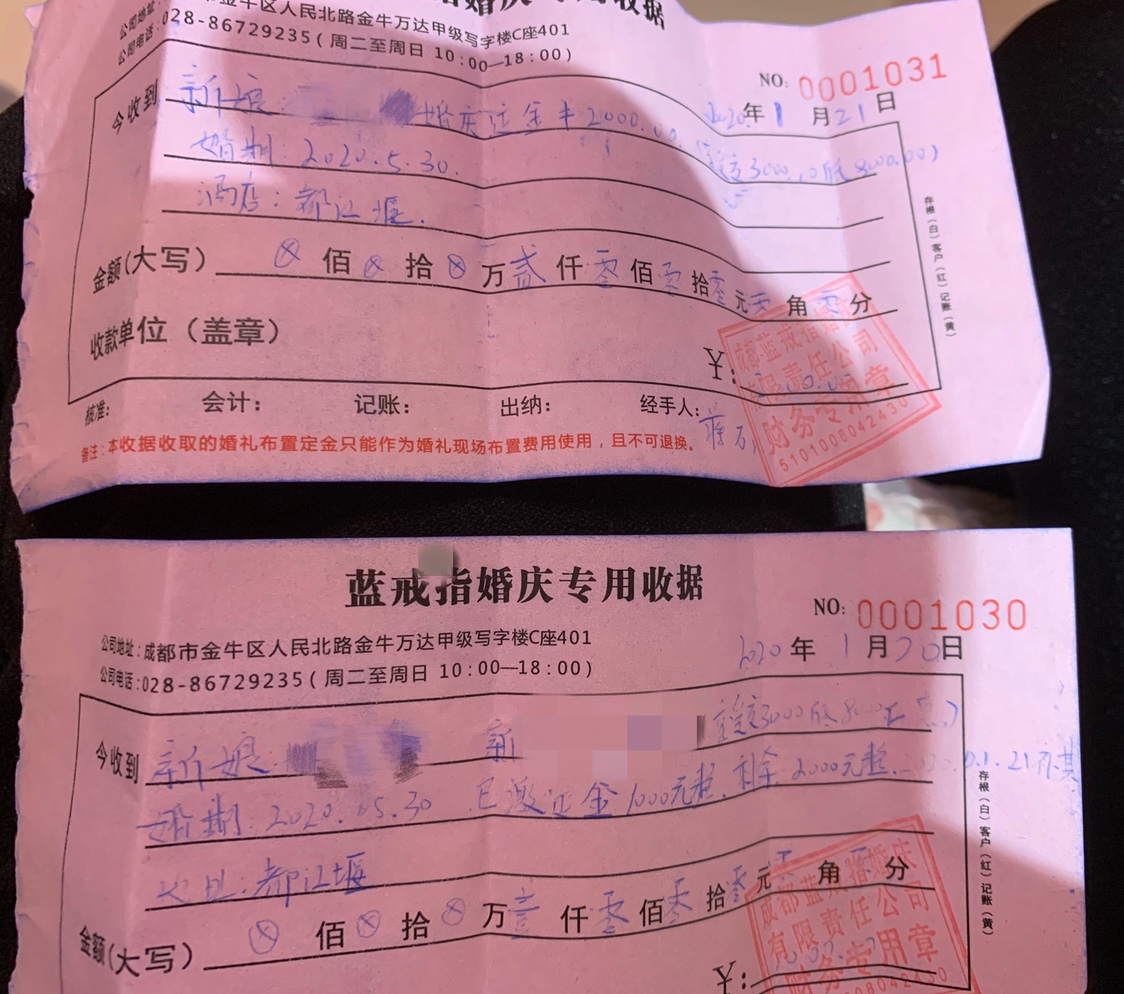 婚庆专用收据
市金牛区人民北路金牛万达甲级写字楼C座401
公司电话:028-86729235(周二至周日 10:00—18:00)
NO: 0001031
2020年1月21日
今收到 新娘: 婚庆定金¥2000.00
3000, 8000.00)
婚期: 2020.5.30.
酒店: 都江堰.
金额(大写) ⊗佰⊗拾⊗万贰仟零佰零拾零元零角零分
收款单位(盖章)
¥:
核准: 会计: 记账: 出纳: 经手人: 蒋
备注:本收据收取的婚礼布置定金只能作为婚礼现场布置费用使用,且不可退换。
存根(白)客户(红)记账(黄)
成都蓝戒指婚庆
有限责任公司
财务专用章
5101008042430
蓝戒指婚庆专用收据
NO: 0001030
公司地址:成都市金牛区人民北路金牛万达甲级写字楼C座401
2020年1月20日
公司电话:028-86729235(周二至周日 10:00—18:00)
今收到 新娘: 新 3000 8000
婚期: 2020.05.30 已缴定金1000元整. 剩余2000元整. 2020.01.21补
地址: 都江堰
金额(大写) ⊗佰⊗拾⊗万壹仟零佰零拾零元零角分
¥:
存根(白)客户(红)记账(黄)
成都蓝戒指婚庆
有限责任公司
财务专用章